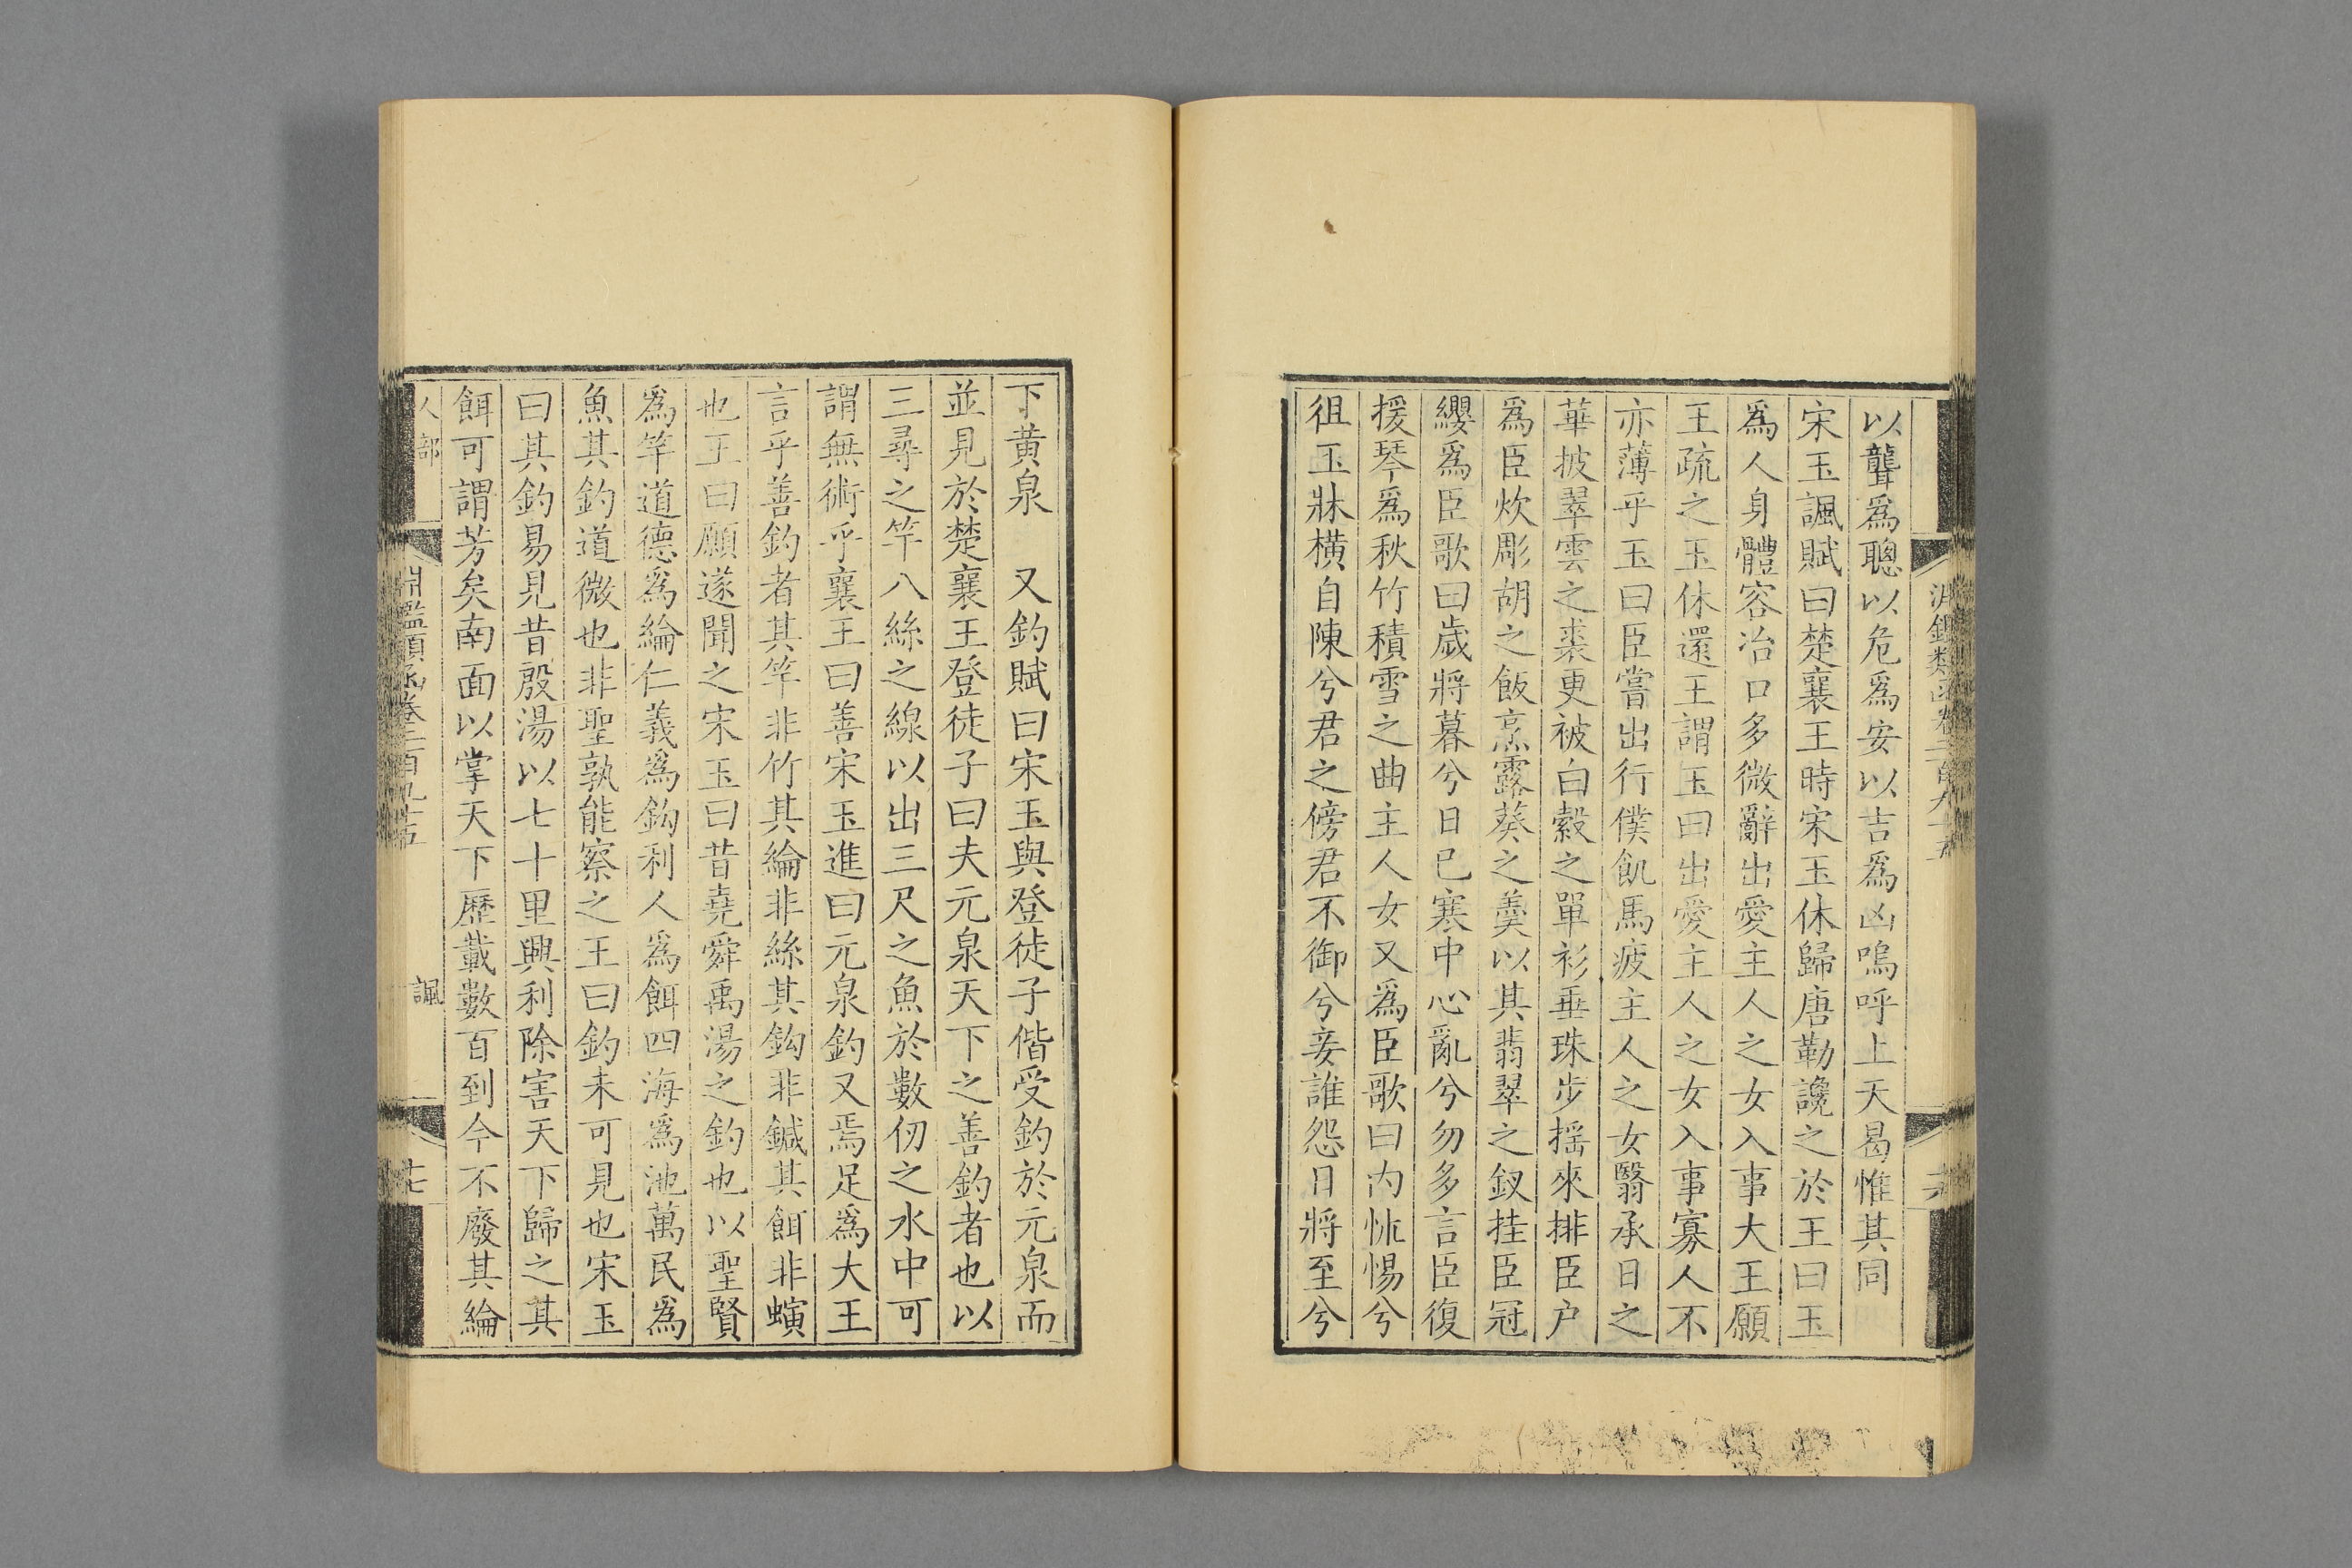 以聾爲聰以危爲安以吉爲凶嗚呼上天曷惟其同
宋玉諷賦曰楚襄王時宋玉休歸唐勒讒之於王曰玉
爲人身體容冶口多微辭出愛主人之女入事大王願
王疏之玉休還王謂玉曰出愛主人之女入事寡人不
亦薄乎玉曰臣嘗出行僕飢馬疲主人之女翳承日之
華披翠雲之裘更被白縠之單衫垂珠步摇來排臣户
爲臣炊彫胡之飯烹露葵之羹以其翡翠之釵挂臣冠
纓爲臣歌曰歲將暮兮日已寒中心亂兮勿多言臣復
援琴爲秋竹積雪之曲主人女又爲臣歌曰内怵惕兮
徂玉牀橫自陳兮君之傍君不御兮妾誰怨日將至兮
下黄泉　又釣賦曰宋玉與登徒子偕受釣於元泉而
並見於楚襄王登徒子曰夫元泉天下之善釣者也以
三尋之竿八絲之線以出三尺之魚於數仞之水中可
謂無術乎襄王曰善宋玉進曰元泉釣又焉足爲大王
言乎善釣者其竿非竹其綸非絲其鈎非鍼其餌非螾
也王曰願遂聞之宋玉曰昔堯舜禹湯之釣也以聖賢
爲竿道德爲綸仁義爲鈎利人爲餌四海爲池萬民爲
魚其釣道微也非聖孰能察之王曰釣未可見也宋玉
曰其釣易見昔殷湯以七十里興利除害天下歸之其
餌可謂芳矣南面以掌天下歷載數百到今不廢其綸
人部　淵鑑類函卷三百九十五　諷　十七